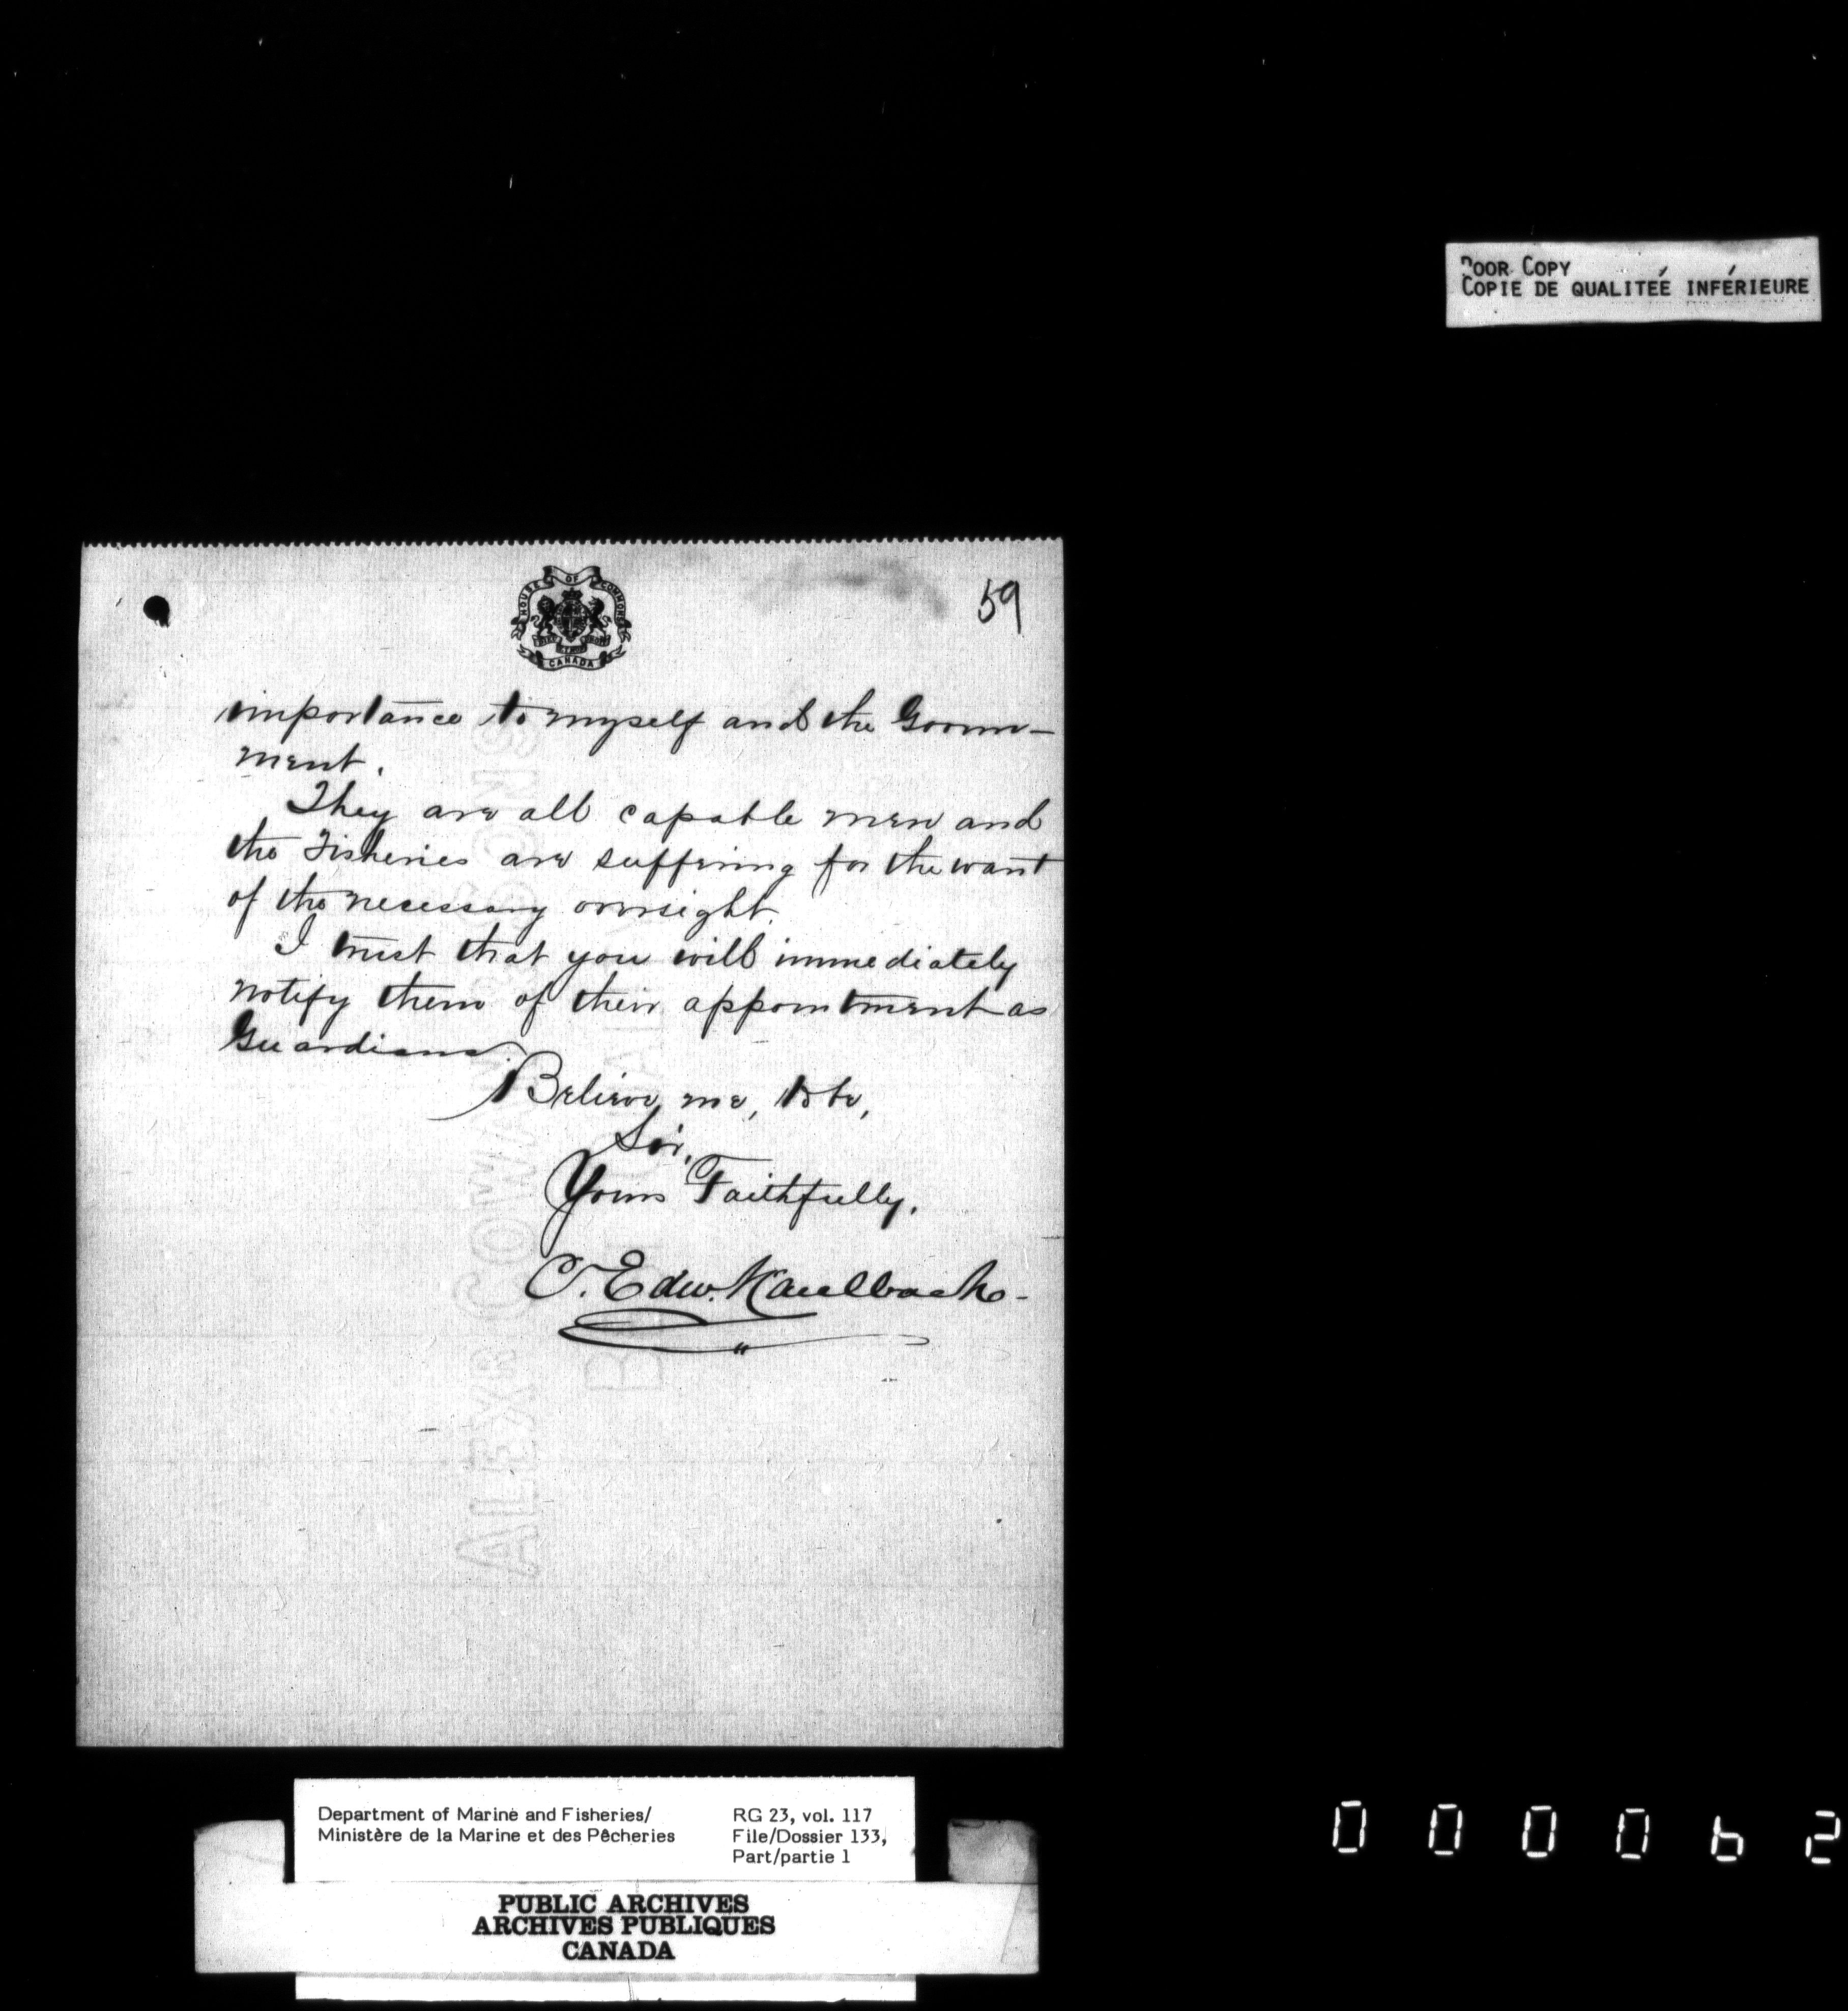 POOR COPY
COPIE DE QUALITEÉ INFÉRIEURE
HOUSE OF COMMONS
CANADA
59
importance to myself and the Govern-
ment.
They are all capable men and
the Fisheries are suffering for the want
of the necessary oversight.
I trust that you will immediately
notify them of their appointment as
Guardians.
Believe me, to be,
Sir,
Yours Faithfully,
C. Edw. Kaulbach
ALEXR COWAN & SONS
Department of Marine and Fisheries/
Ministère de la Marine et des Pêcheries
RG 23, vol. 117
File/Dossier 133,
Part/partie 1
PUBLIC ARCHIVES
ARCHIVES PUBLIQUES
CANADA
000062